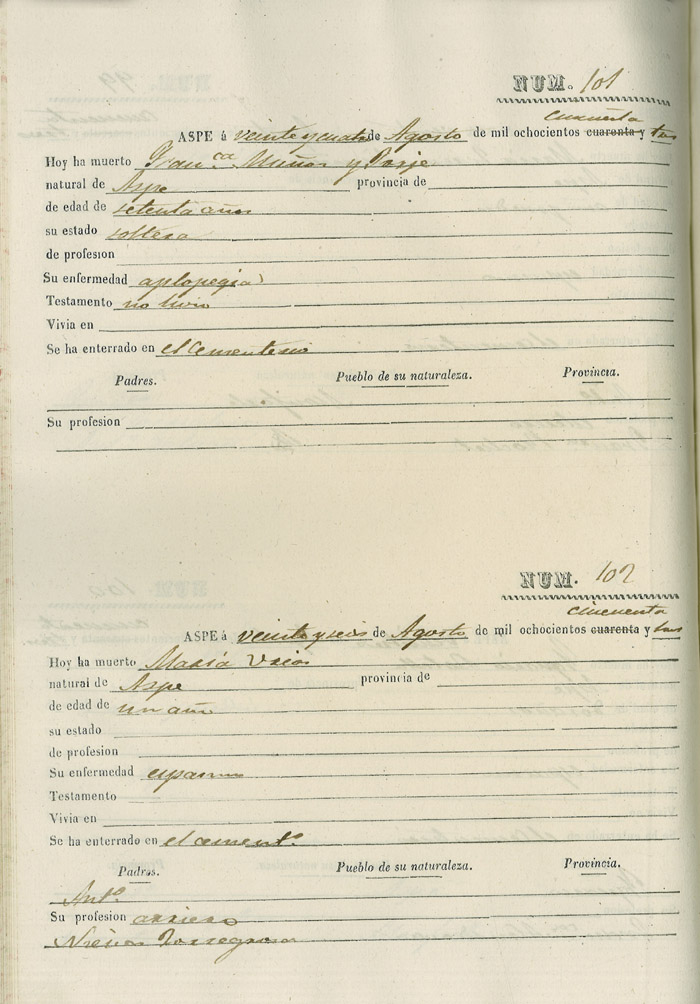 NUM. 101
cincuenta
ASPE á veinte y cuatro de Agosto de mil ochocientos cuarenta y tres
Hoy ha muerto Fran.ca Muños y
natural de Aspe provincia de
de edad de setenta años
su estado soltera
de profesion
Su enfermedad aplopegia
Testamento no hizo
Vivia en
Se ha enterrado en el Cementerio
Padres. Pueblo de su naturaleza. Provincia.
Su profesion
NUM. 102
cincuenta
ASPE á veinte y seis de Agosto de mil ochocientos cuarenta y tres
Hoy ha muerto Maria
natural de Aspe provincia de
de edad de un año
su estado
de profesion
Su enfermedad
Testamento
Vivia en
Se ha enterrado en el cement.o
Padres. Pueblo de su naturaleza. Provincia.
Ant.o
Su profesion arriero
Nieves Torregrosa